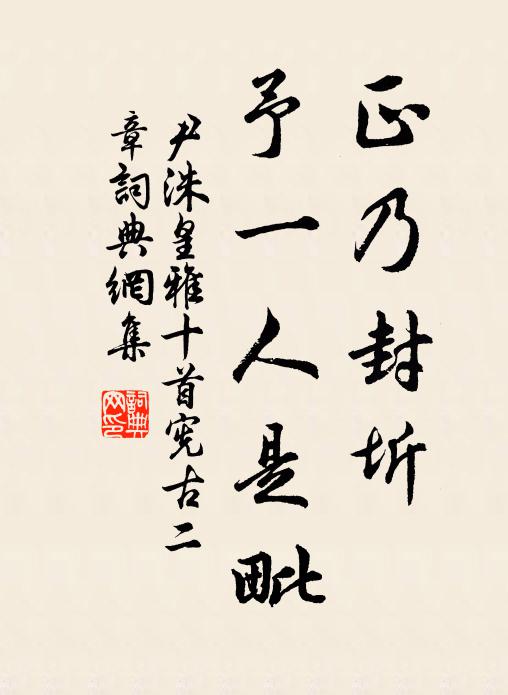 正乃封圻
予一人是毗
尹洙皇雅十首宪古二
章詞典網集
詞典
网印